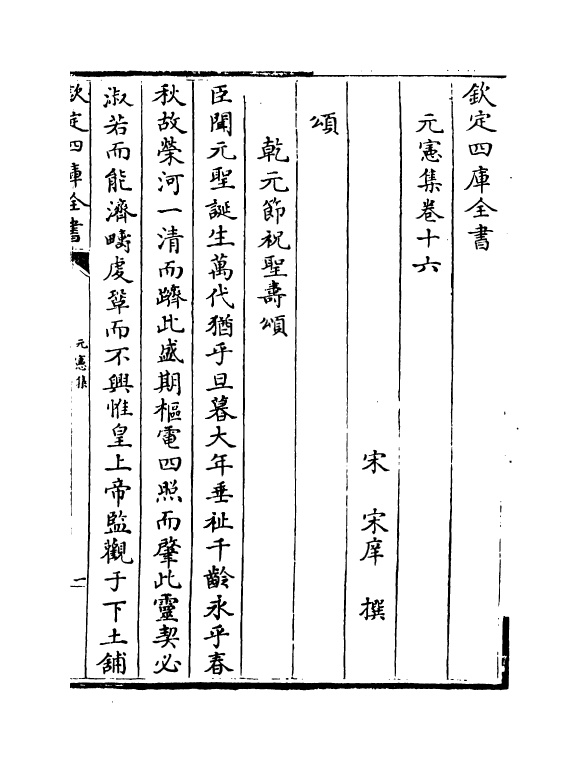 欽定四庫全書
元憲集卷十六
宋 宋庠 撰
頌
乾元節祝聖壽頌
臣聞元聖誕生萬代猶乎旦暮大年垂祉千齡永乎春
秋故榮河一清而躋此盛期樞電四照而肇此靈契必
淑若而能濟疇虔鞏而不興惟皇上帝監觀于下土鋪
欽定四庫全書
元憲集
一